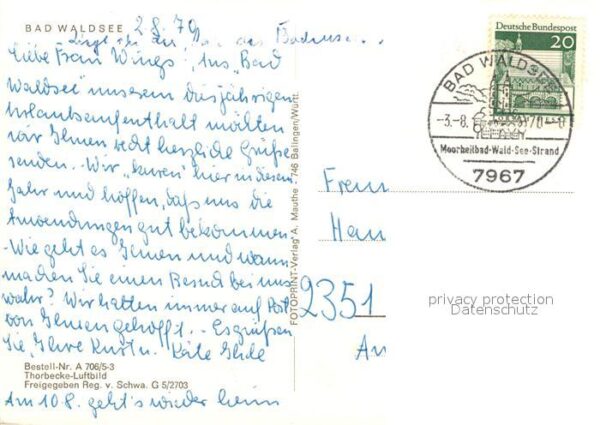 BAD WALDSEE 2.8.70
Liebe Frau Wings, Aus "Bad
Waldsee" unserem diesjährigen
Urlaubsaufenthalt möchten
wir Ihnen recht herzliche Grüße
senden. - Wir "kuren" hier in diesem
Jahr und hoffen, daß uns die
Anwendungen gut bekommen.
- Wie geht es Ihnen und wann
machen Sie einen Besuch bei uns
wahr? Wir hatten immer auf Post
von Ihnen gehofft. - Es grüßen
Sie, Ihre Kurt u. Käte
Bestell-Nr. A 706/5-3
Thorbecke-Luftbild
Freigegeben Reg. v. Schwa. G 5/2703
Am 10.8. geht's wieder heim
FOTOPRINT-Verlag A. Mauthe - 746 Balingen/Württ.
Deutsche Bundespost
20
BAD WALDSEE
-3.-8.
Moorheilbad-Wald-See-Strand
7967
2351
privacy protection
Datenschutz